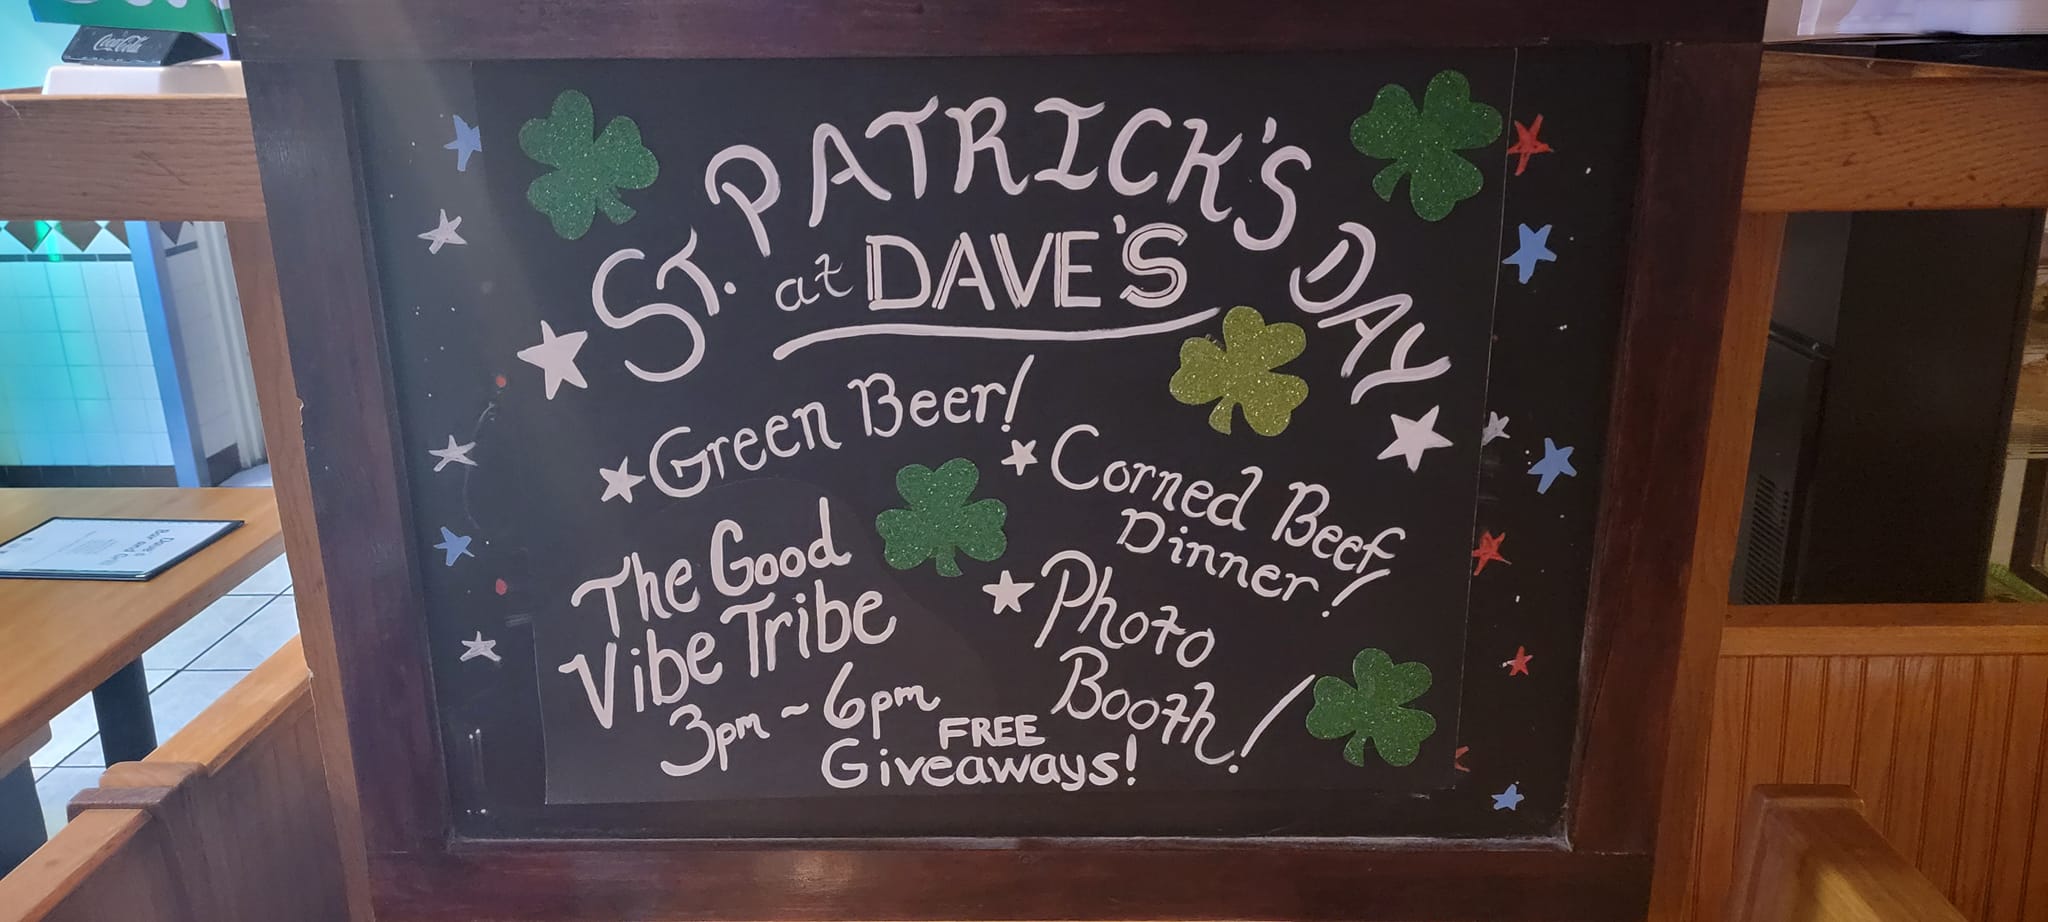 Coca-Cola
ST. PATRICK'S DAY
at DAVE'S
Green Beer!
Corned Beef
Dinner!
The Good
Vibe Tribe
3pm ~ 6pm
Photo
Booth!
FREE
Giveaways!
Dave's
Bar and Grill